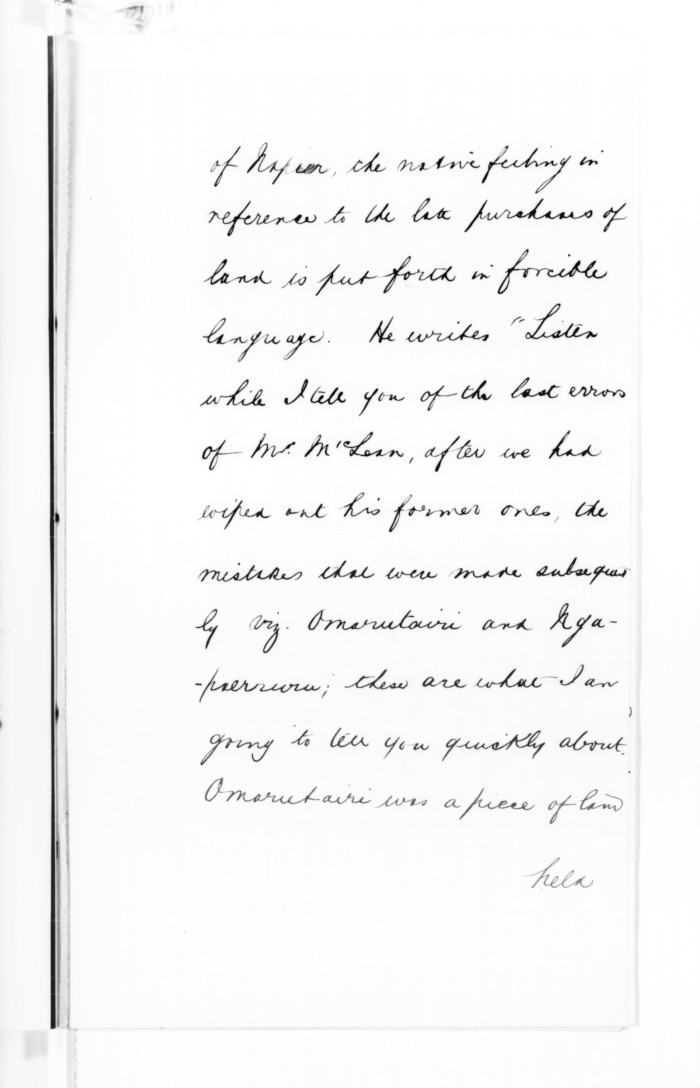 of Napier, the native feeling in
reference to the late purchases of
land is put forth in forcible
language. He writes "Listen
while I tell you of the last errors
of Mr. McLean, after we had
wiped out his former ones, the
mistakes that were made subsequent
ly viz. Omarutairi and Nga-
these are what I am
going to tell you quickly about.
Omarutairi was a piece of land
held